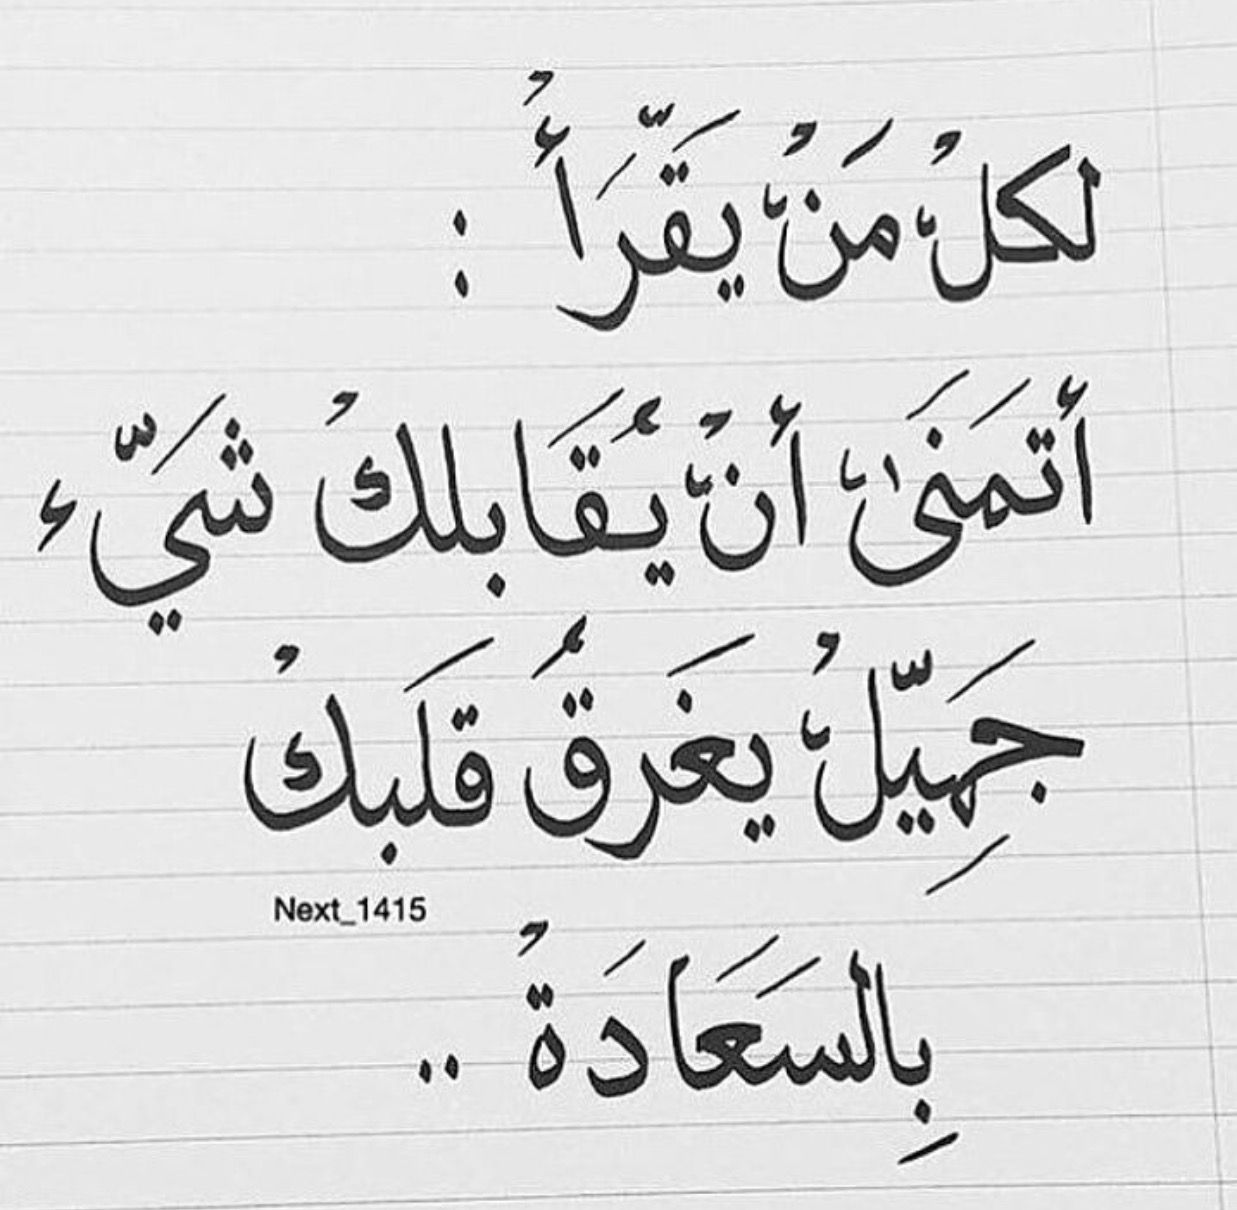 لكلْ مَنْ يَقّرَأْ :
أتمَنَىٰ أنْ يُقَابلكْ شَيّء
جَمِيّلْ يغَرقُ قلَبكْ
Next_1415
بِالسَعَادَةْ ..